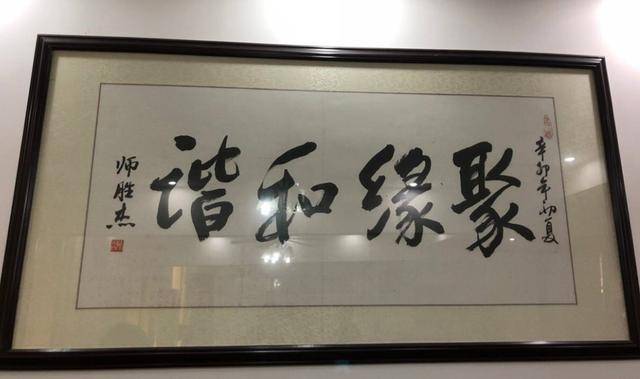 辛卯年初夏
聚缘和谐
师胜杰